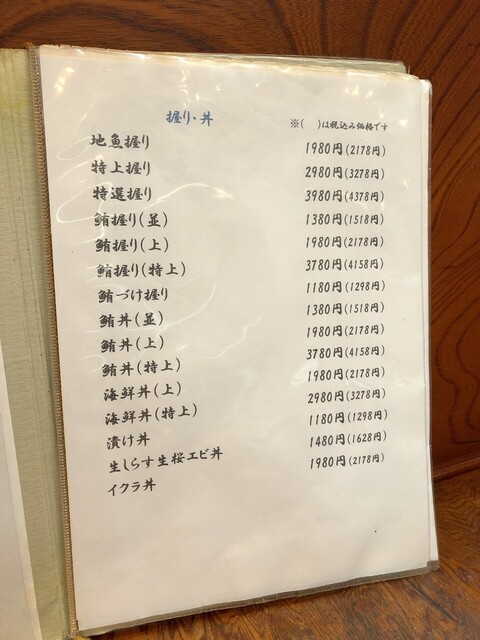 握り・丼
※(　)は税込み価格です
地魚握り 1980円(2178円)
特上握り 2980円(3278円)
特選握り 3980円(4378円)
鮪握り(並) 1380円(1518円)
鮪握り(上) 1980円(2178円)
鮪握り(特上) 3780円(4158円)
鮪づけ握り 1180円(1298円)
鮪丼(並) 1380円(1518円)
鮪丼(上) 1980円(2178円)
鮪丼(特上) 3780円(4158円)
海鮮丼(上) 1980円(2178円)
海鮮丼(特上) 2980円(3278円)
漬け丼 1180円(1298円)
生しらす生桜エビ丼 1480円(1628円)
イクラ丼 1980円(2178円)